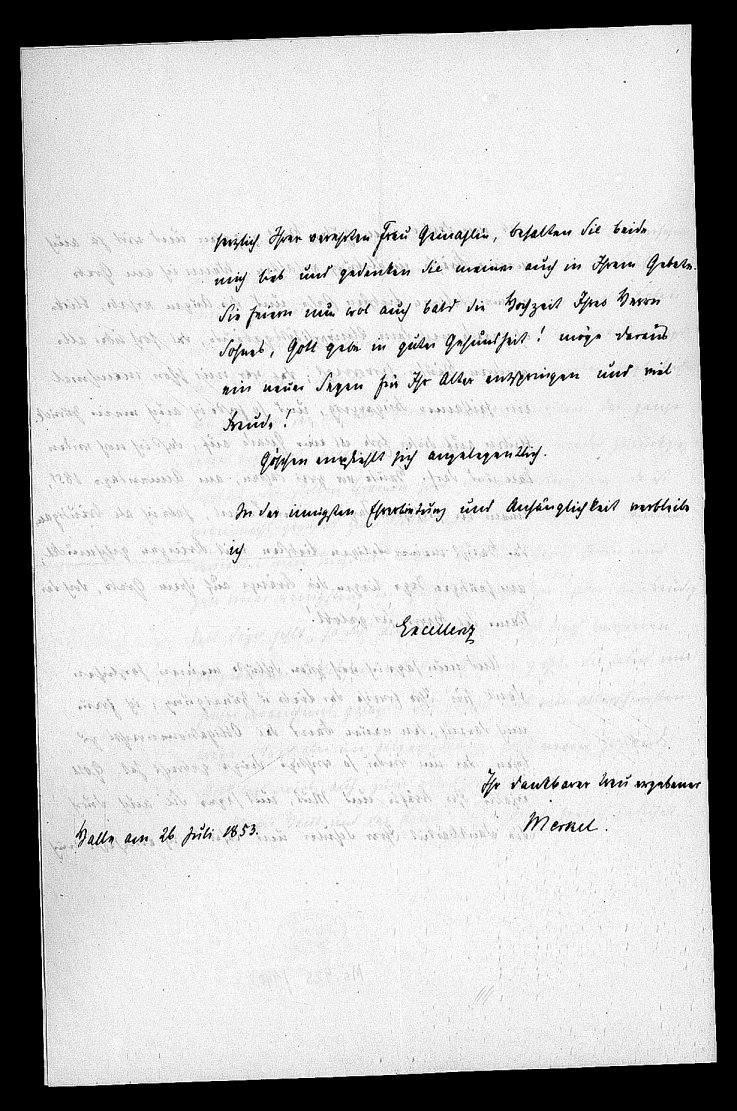 herzlich Ihrer verehrten Frau Gemahlin, behalten Sie beide
mich lieb und gedenken Sie meiner auch in Ihrem Gebete.
Sie feiern nun wol auch bald die Hochzeit Ihres Herrn
Sohnes, Gott gebe in guter Gesundheit! möge daraus
ein neuer Segen für Ihr Alter entspringen und viel
Freude!
Göschen empfiehlt sich angelegentlich.
In der innigsten Ehrerbietung und Anhänglichkeit verbleibe
ich
Excellenz
Ihr dankbarer treu ergebener
Merkel.
Halle am 26 Juli 1853.